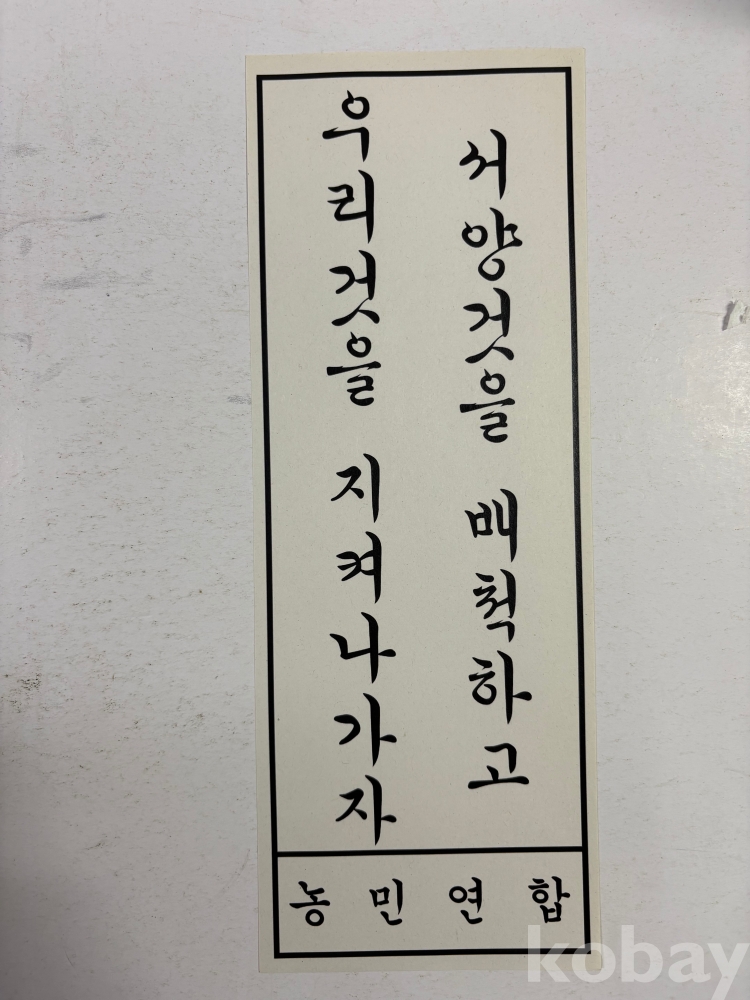 서양것을 배척하고
우리것을 지켜나가자
농민연합
kobay